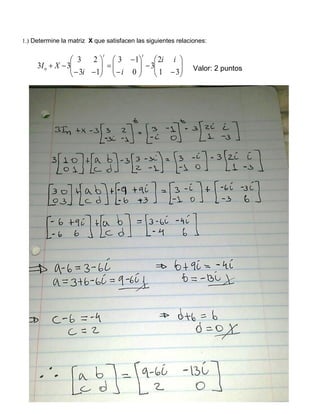 1.) Determine la matriz X que satisfacen las siguientes relaciones:
3Iₙ + X −3( 3 2 ; −3i −1 )ᵗ = ( 3 −1 ; −i 0 )ᵗ −3( 2i i ; 1 −3 ) Valor: 2 puntos
3Iₙ + X − 3[ 3 2 ; −3i −1 ]ᵗ = [ 3 −1 ; −i 0 ]ᵗ − 3[ 2i i ; 1 −3 ]
3[ 1 0 ; 0 1 ] + [ a b ; c d ] − 3[ 3 −3i ; 2 −1 ] = [ 3 −i ; −1 0 ] − 3[ 2i i ; 1 −3 ]
[ 3 0 ; 0 3 ] + [ a b ; c d ] + [ −9 +9i ; −6 +3 ] = [ 3 −i ; −1 0 ] + [ −6i −3i ; −3 6 ]
[ −6 +9i ; −6 6 ] + [ a b ; c d ] = [ 3−6i −4i ; −4 6 ]
⇒ a−6 = 3−6i ⇒ b+9i = −4i
a = 3+6−6i = 9−6i b = −13i
⇒ c−6 = −4 ⇒ d+6 = 6
c = 2 d = 0
∴ [ a b ; c d ] = [ 9−6i −13i ; 2 0 ]